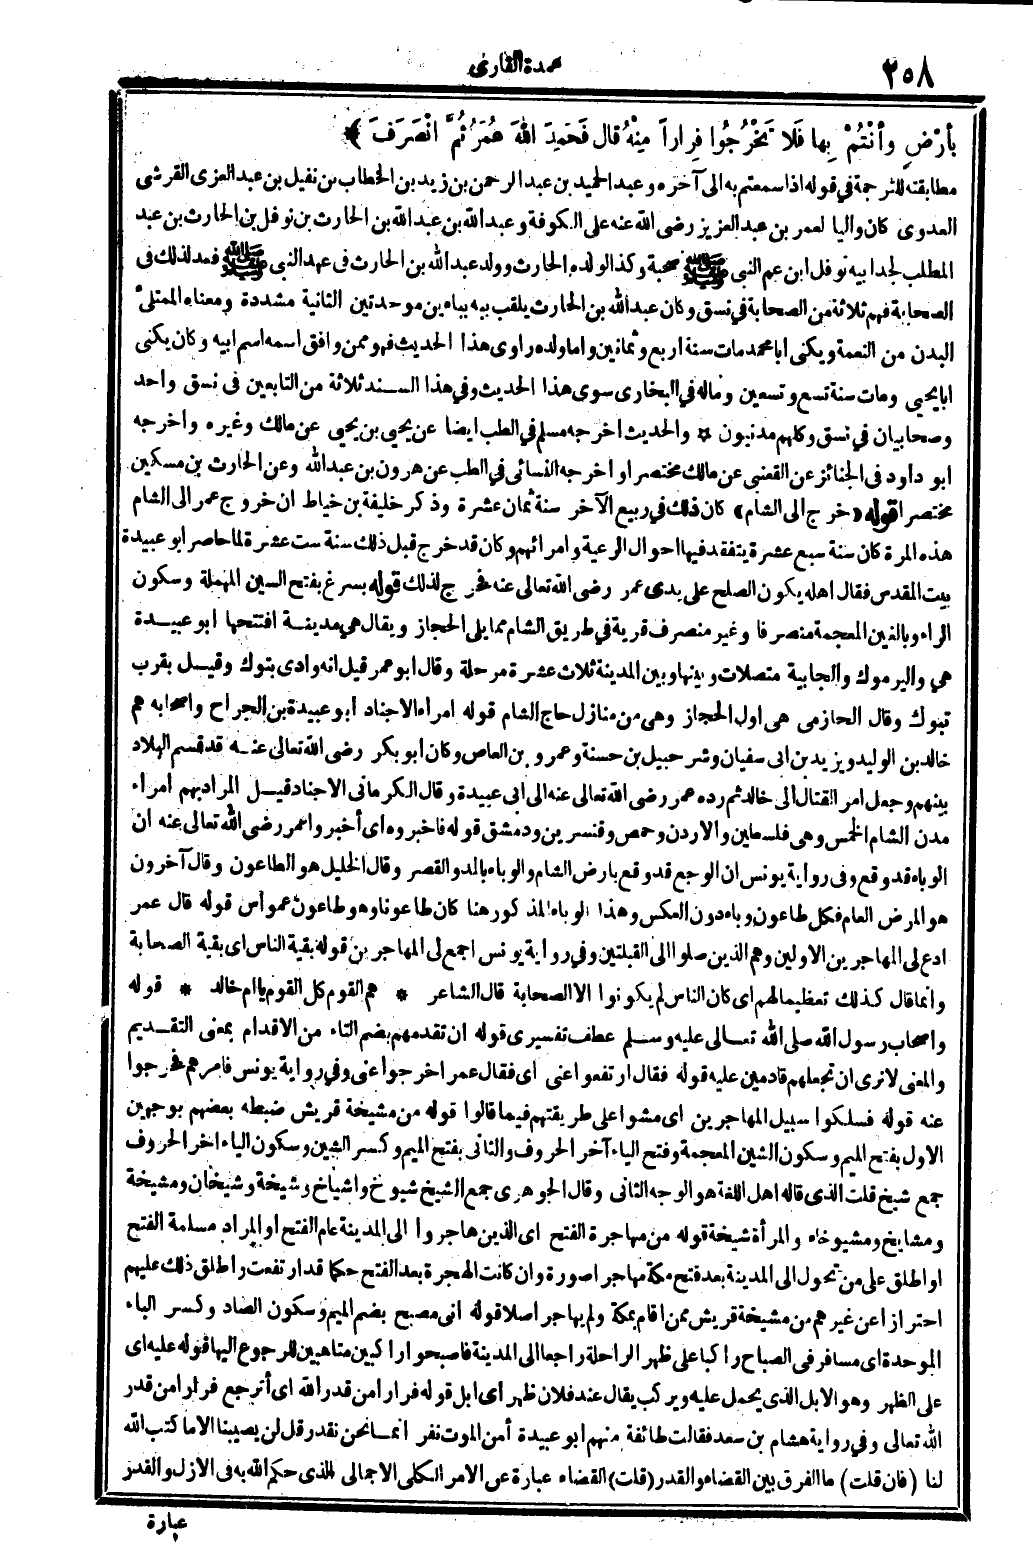 ٢٥٨
عمدة القارى
بأرْضٍ وأنْتُمْ بِها فَلَا تَخْرُجُوا فِراراً مِنْهُ قال فَحَمِدَ اللهَ عُمَرُ ثُمَّ انْصَرَفَ ﴾
مطابقته للترجمة في قوله اذا سمعتم به الى آخره وعبد الحميد بن عبد الرحمن بن زيد بن الخطاب بن نفيل بن عبد العزى القرشى
العدوى كان واليا لعمر بن عبد العزيز رضى الله عنه على الكوفة وعبد الله بن عبد الله بن الحارث بن نوفل بن الحارث بن عبد
المطلب لجد ابيه نوفل ابن عم النبي ﷺ صحبة وكذا لولده الحارث وولد عبد الله بن الحارث فى عهد النبى ﷺ فعد لذلك فى
الصحابة فهم ثلاثة من الصحابة في نسق وكان عبد الله بن الحارث يلقب ببه بباءين موحدتين الثانية مشددة ومعناه الممتلئ
البدن من النعمة ويكنى ابا محمد مات سنة اربع وثمانين واما ولده راوى هذا الحديث فهو ممن وافق اسمه اسم ابيه وكان يكنى
ابا يحيى ومات سنة تسع وتسعين وماله في البخارى سوى هذا الحديث وفي هذا السند ثلاثة من التابعين فى نسق واحد
وصحابيان في نسق وكلهم مدنيون ☆ والحديث اخرجه مسلم في الطب ايضا عن يحيى بن يحيى عن مالك وغيره واخرجه
ابو داود فى الجنائز عن القعنبى عن مالك مختصرا واخرجه النسائى في الطب عن هرون بن عبد الله وعن الحارث بن مسكين
مختصرا قوله «خرج الى الشام» كان ذلك في ربيع الآخر سنة ثمان عشرة وذكر خليفة بن خياط ان خروج عمر الى الشام
هذه المرة كان سنة سبع عشرة يتفقد فيها احوال الرعية وامرائهم وكان قد خرج قبل ذلك سنة ست عشرة لما حاصر ابو عبيدة
بيت المقدس فقال اهله يكون الصلح على يدى عمر رضى الله تعالى عنه فخرج لذلك قوله بسرغ بفتح السين المهملة وسكون
الراء وبالغين المعجمة منصرفا وغير منصرف قرية في طريق الشام مما يلى الحجاز ويقال هي مدينة افتتحها ابو عبيدة
هي واليرموك والجابية متصلات وبينها وبين المدينة ثلاث عشرة مرحلة وقال ابو عمر قيل انه وادى بتوك وقيل بقرب
تبوك وقال الحازمى هى اول الحجاز وهى من منازل حاج الشام قوله امراء الاجناد ابو عبيدة بن الجراح واصحابه هم
خالد بن الوليد ويزيد بن ابى سفيان وشرحبيل بن حسنة وعمرو بن العاص وكان ابو بكر رضى الله تعالى عنه قد قسم البلاد
بينهم وجعل امر القتال الى خالد ثم رده عمر رضى الله تعالى عنه الى ابى عبيدة وقال الكرمانى الاجناد قيل المراد بهم امراء
مدن الشام الخمس وهى فلسطين والاردن وحمص وقنسرين ودمشق قوله فاخبروه اى أخبروا عمر رضى الله تعالى عنه ان
الوباء قد وقع وفى رواية يونس ان الوجع قد وقع بارض الشام والوباء بالمد والقصر وقال الخليل هو الطاعون وقال آخرون
هو المرض العام فكل طاعون وباء دون العكس وهذا الوباء المذكور هنا كان طاعونا وهو طاعون عمواس قوله قال عمر
ادع لى المهاجرين الاولين وهم الذين صلوا الى القبلتين وفي رواية يونس اجمع لى المهاجرين قوله بقية الناس اى بقية الصحابة
وانما قال كذلك تعظيما لهم اى كان الناس لم يكونوا الا الصحابة قال الشاعر * هم القوم كل القوم يا ام خالد * قوله
واصحاب رسول الله صلى الله تعالى عليه وسلم عطف تفسيرى قوله ان تقدمهم بضم التاء من الاقدام بمعنى التقديم
والمعنى لا نرى ان تجعلهم قادمين عليه قوله فقال ارتفعوا عنى اى فقال عمر اخرجوا عنى وفي رواية يونس فامرهم فخرجوا
عنه قوله فسلكوا سبيل المهاجرين اى مشوا على طريقتهم فيما قالوا قوله من مشيخة قريش ضبطه بعضهم بوجهين
الاول بفتح الميم وسكون الشين المعجمة وفتح الياء آخر الحروف والثانى بفتح الميم وكسر الشين وسكون الياء اخر الحروف
جمع شيخ قلت الذى قاله اهل اللغة هو الوجه الثانى وقال الجوهرى جمع الشيخ شيوخ واشياخ وشيخة وشيخان ومشيخة
ومشايخ ومشيوخاء والمرأة شيخة قوله من مهاجرة الفتح اى الذين هاجروا الى المدينة عام الفتح او المراد مسلمة الفتح
او اطلق على من تحول الى المدينة بعد فتح مكة مهاجرا صورة وان كانت الهجرة بعد الفتح حكما قد ارتفعت واطلق ذلك عليهم
احترازا عن غيرهم من مشيخة قريش ممن اقام بمكة ولم يهاجر اصلا قوله انى مصبح بضم الميم وسكون الصاد وكسر الباء
الموحدة اى مسافر فى الصباح راكبا على ظهر الراحلة راجعا الى المدينة فاصبحوا راكبين متاهبين للرجوع اليها قوله عليه اى
على الظهر وهو الابل الذى يحمل عليه ويركب يقال عند فلان ظهر اى ابل قوله فرارا من قدر الله اى أترجع فرارا من قدر
الله تعالى وفي رواية هشام بن سعد فقالت طائفة منهم ابو عبيدة أمن الموت نفر انما نحن نقدر قل لن يصيبنا الا ما كتب الله
لنا (فان قلت) ما الفرق بين القضاء والقدر (قلت) القضاء عبارة عن الامر الكلى الاجمالى الذى حكم الله به فى الازل والقدر
عبارة